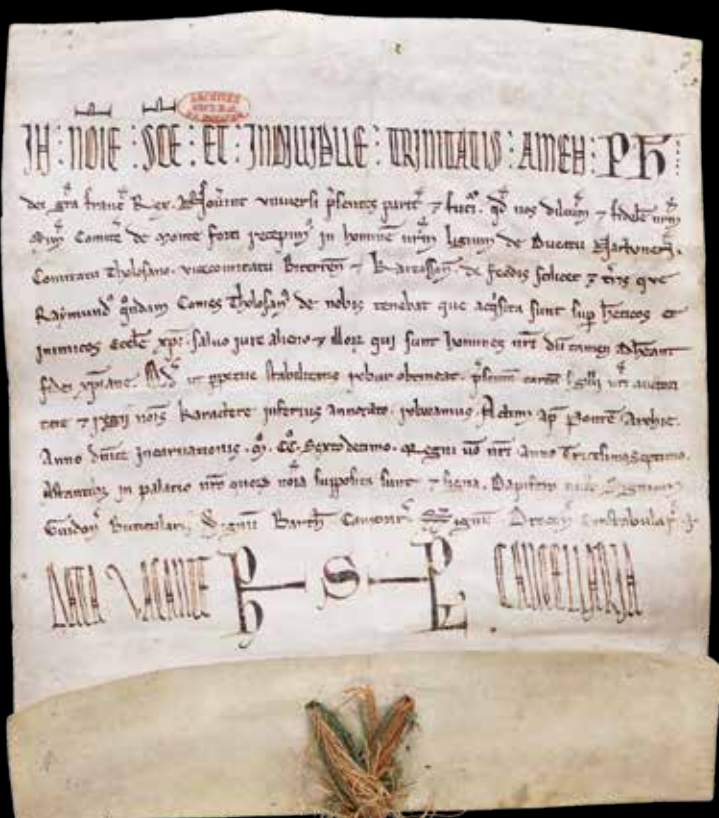 IN : NOIE : SCE : ET : INDIVIDUE : TRINITATIS : AMEN : PH
dei gra franc Rex. Noverint universi psentes parit & futi. qd nos dilectum & fidelem nrm
Sim Comite de Monte forti recepim in homine nrm ligium de Ducatu Narbonen.
Comitatu Tholosano. vicecomitatu Biterren & Karcasson. de feodis scilicet & tris que
Raymund qndam Comes Tholosan de nobis tenebat que acqsita sunt sup hereticos et
inimicos Eccle xpi. salvo jure alieno & illor qui sunt homines nri dum tamen adhereant
fidei xpiane. Qd ut ppetue stabilitatis robur obtineat. psentem cartam sigilli nri auctori
tate & regii nois karactere inferius annotato. roboramus. Actum ap Ponte Archie.
Anno dnice Incarnationis. M. CC. Sextodecimo. Regni vo nri anno Tricesimoseptimo.
Astantib in palatio nro quor noia supposita sunt & signa. Dapifero nullo. Signum
Guidon Buticularii. Signum Barth Camerar. Signum Drocon Constabular.
DATA VACANTE PH S PS CANCELLARIA